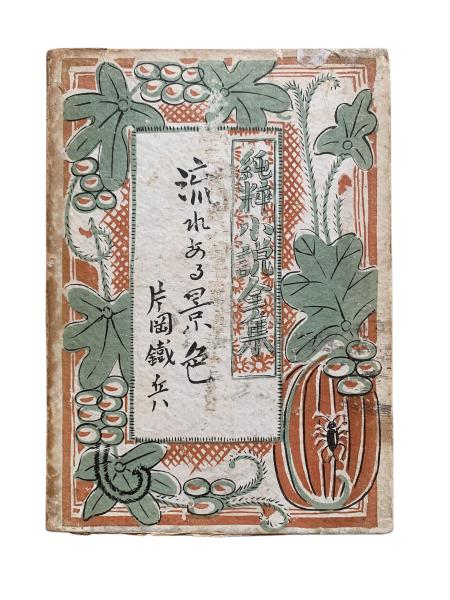 純粹小説全集
流れある景色
片岡鐵兵